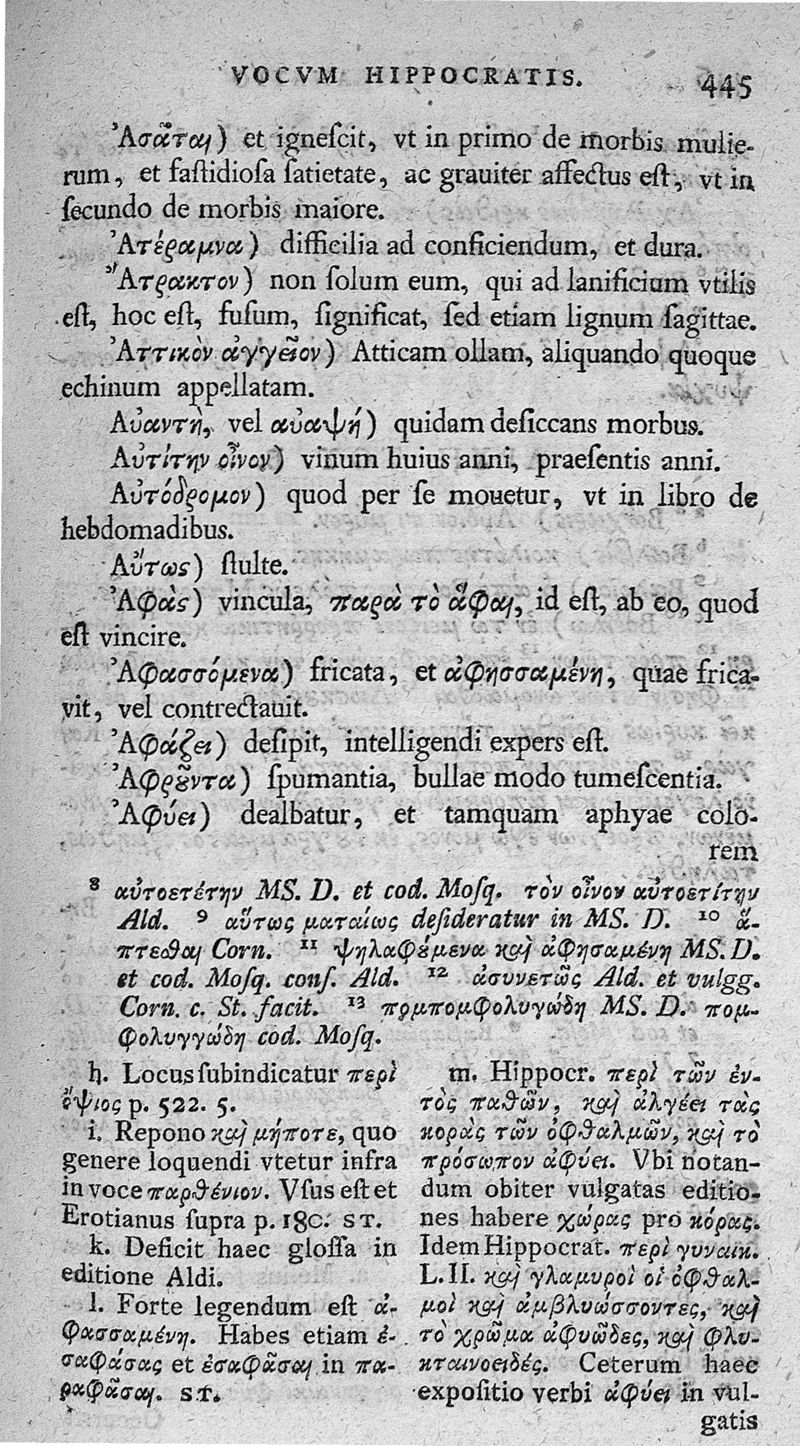 VOCVM HIPPOCRATIS. 445
Ἀσᾶται) et ignefcit, vt in primo de morbis mulie-
rum, et faſtidioſa ſatietate, ac grauiter affectus eſt, vt in
ſecundo de morbis maiore.
Ἀτέραμνα) difficilia ad conficiendum, et dura.
Ἄτρακτον) non ſolum eum, qui ad lanificium vtilis
eſt, hoc eſt, fuſum, ſignificat, ſed etiam lignum ſagittae.
Ἀττικὸν ἀγγεῖον) Atticam ollam, aliquando quoque
echinum appellatam.
Αὐαντὴ, vel αὐαψή) quidam deſiccans morbus.
Αὐτίτην οἶνον) vinum huius anni, praeſentis anni.
Αὐτόδρομον) quod per ſe mouetur, vt in libro de
hebdomadibus.
Αὔτως) ſtulte.
Ἀφὰς) vincula, παρὰ τὸ ἅφαι, id eſt, ab eo, quod
eſt vincire.
Ἀφασσόμενα) fricata, et ἀφησσαμένη, quae frica-
vit, vel contrectauit.
Ἀφάζει) deſipit, intelligendi expers eſt.
Ἀφροῦντα) ſpumantia, bullae modo tumeſcentia.
Ἀφύει) dealbatur, et tamquam aphyae colo-
rem
⁸ αὐτοετέτην MS. D. et cod. Moſq. τὸν οἶνον αὐτοετίτην
Ald. ⁹ αὕτως ματαίως deſideratur in MS. D. ¹⁰ ἅ-
πτεσθαι Corn. ¹¹ ψηλαφούμενα καὶ ἀφησαμένη MS. D.
et cod. Moſq. conſ. Ald. ¹² ἀσυνετῶς Ald. et vulgg.
Corn. c. St. facit. ¹³ πρμπομφολυγώδη MS. D. πομ-
φολυγγώδη cod. Moſq.
h. Locus ſubindicatur περὶ
ὄψιος p. 522. 5.
i. Repono καὶ μήποτε, quo
genere loquendi vtetur infra
in voce παρθένιον. Vſus eſt et
Erotianus ſupra p. 180. ST.
k. Deficit haec gloſſa in
editione Aldi.
l. Forte legendum eſt ἀ-
φασσαμένη. Habes etiam ἐ-
σαφάσας et ἐσαφᾶσαι in πα-
ραφᾶσαι. ST.
m. Hippocr. περὶ τῶν ἐν-
τὸς παθῶν, καὶ ἀλγέει τὰς
κορὰς τῶν ὀφθαλμῶν, καὶ τὸ
πρόσωπον ἀφύει. Vbi notan-
dum obiter vulgatas editio-
nes habere χώρας pro κόρας.
Idem Hippocrat. περὶ γυναικ.
L. II. καὶ γλαμυροὶ οἱ ὀφθαλ-
μοὶ καὶ ἀμβλυώσσοντες, καὶ
τὸ χρῶμα ἀφυῶδες, καὶ φλυ-
κταινοειδές. Ceterum haec
expoſitio verbi ἀφύει in vul-
gatis